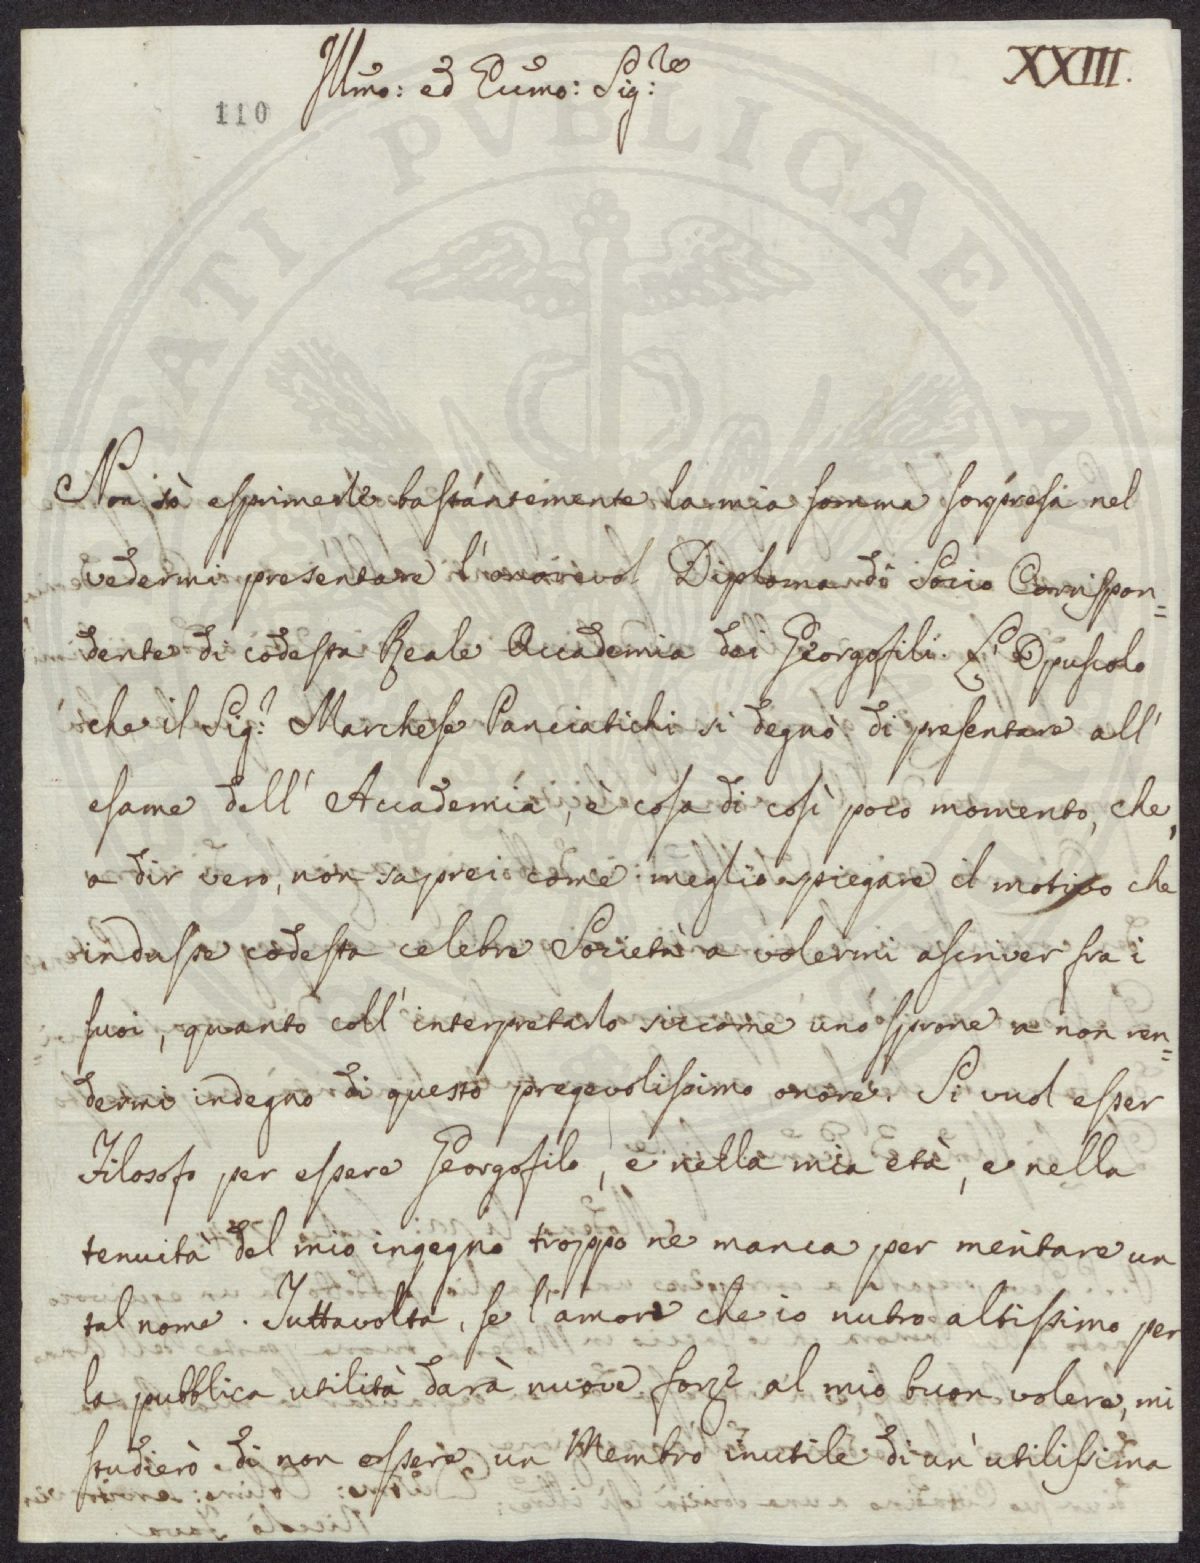 XXIII.
Illmo: ed Eccmo: Sig:re
110
PVBLICAE
Non sò esprimerle bastantemente la mia somma sorpresa nel
vedermi presentare l'onorevol Diploma di Socio Corrispon=
dente di codesta Reale Accademia dei Georgofili. L'Opuscolo
che il Sig:r Marchese Panciatichi si degnò di presentare all'
esame dell'Accademia, è cosa di così poco momento, che,
a dir vero, non saprei come meglio spiegare il motivo che
indusse codesta celebre Società a volermi ascriver fra i
suoi, quanto coll'interpretarlo siccome uno sprone a non ren=
dermi indegno di questo pregevolissimo onore. Si vuol esser
Filosofo per essere Georgofilo, e nella mia età, e nella
tenuità del mio ingegno troppo nè manca per meritare un
tal nome. Tuttavolta, se l'amore che io nutro altissimo per
la pubblica utilità darà nuove forze al mio buon volere, mi
studierò di non essere un Membro inutile di un'utilissima